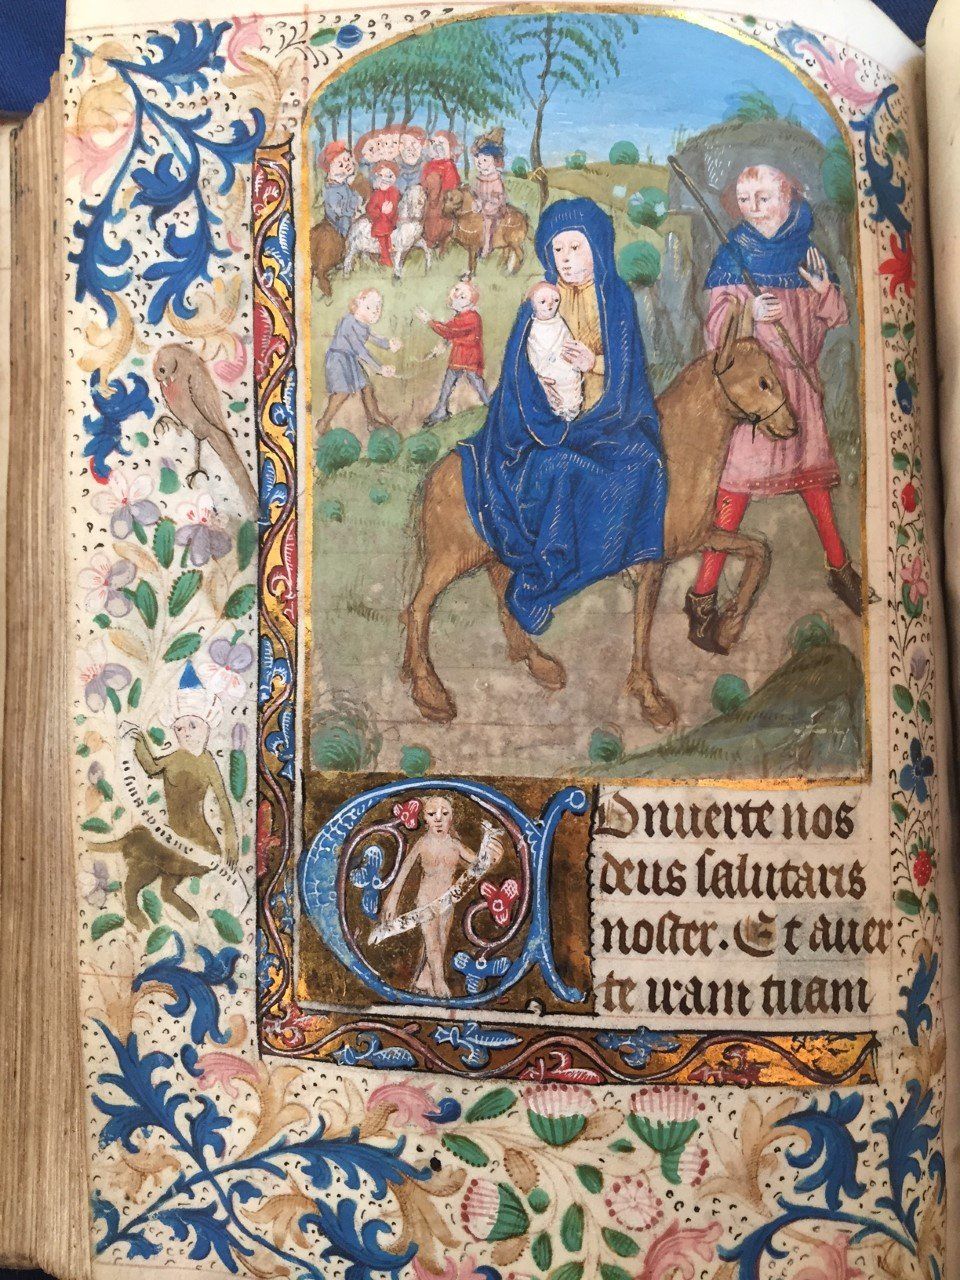 COnuerte nos
deus salutaris
noster. Et auer
te iram tuam